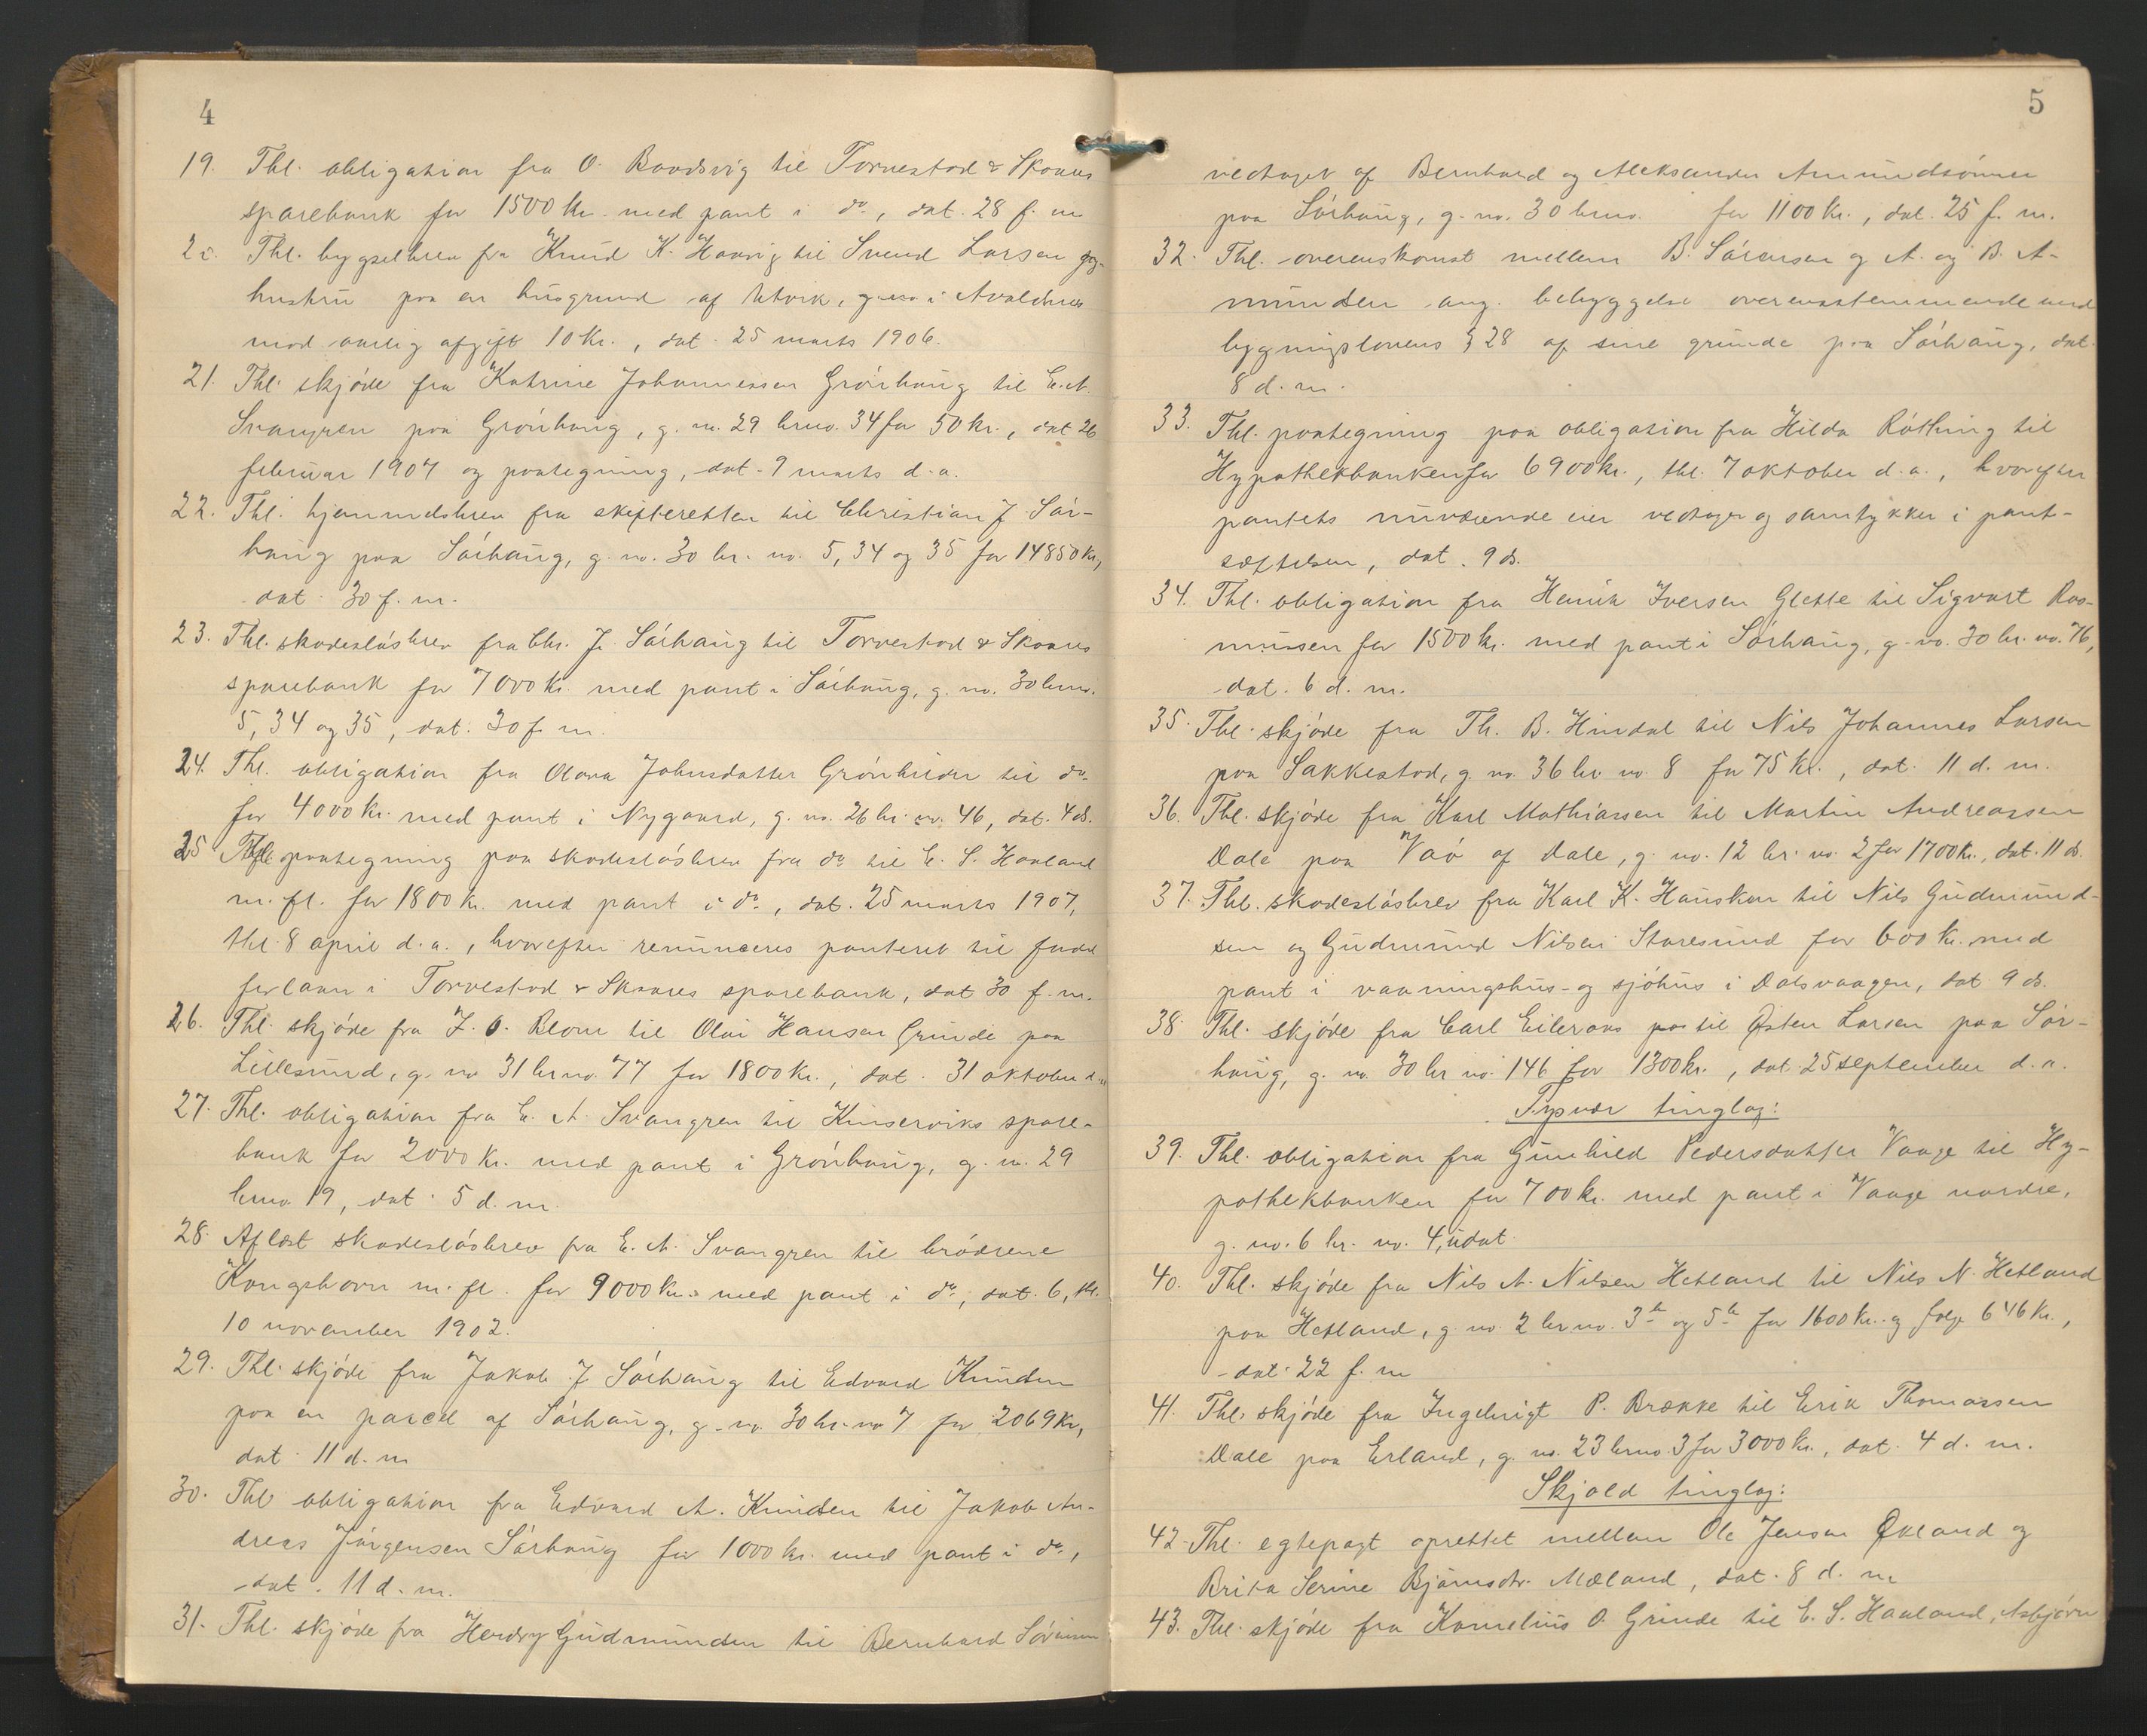 4
19. Thl. obligation fra O. Baadsvig til Torvestad & Skaares
sparebank for 1500 kr. med pant i do., dat. 28 f. m
20. Thl. bygselbrev fra Knud K. Haavig til Svend Larsen og
hustru paa en husgrund af Utvik, g. no i Avaldsnes
mod aarlig afgift 10 kr., dat. 25 marts 1906.
21. Thl. skjøde fra Katrine Johannessen Grønhaug til E. A.
Svangren paa Grønhaug, g. no. 29 brno. 34 for 50 kr., dat 26
februar 1907 og paategning, dat. 9 marts d. a.
22. Thl. hjemmelsbrev fra skifteretten til Christian J. Sør-
haug paa Sørhaug, g. no. 30 br. no. 5, 34 og 35 for 14850 kr,
dat. 30 f. m.
23. Thl. skadesløsbrev fra Chr. J. Sørhaug til Torvestad & Skaares
sparebank for 7000 kr. med pant i Sørhaug, g. no. 30 brno.
5, 34 og 35, dat. 30 f. m.
24. Thl. obligation fra Olava Johnsdatter Grønlien til do.
for 4000 kr. med pant i Nygaard, g. no. 26 br. no. 46, dat. 4 ds.
25 Thl. paategning paa skadesløsbrev fra do til E. S. Haaland
m. fl. for 1800 kr. med pant i do, dat. 25 marts 1907,
thl. 8 april d. a., hvorefter renunceres panteret til fordel
for laan i Torvestad & Skaares sparebank, dat 30 f. m.
26. Thl. skjøde fra J. O. Blom til Olai Hansen Grinde paa
Lillesund, g. no 31 br no. 77 for 1800 kr., dat. 31 oktober d. a
27. Thl. obligation fra E. A. Svangren til Kinserviks spare-
bank for 2000 kr. med pant i Grønhaug, g. no. 29
brno 19, dat. 5 d. m
28. Aflæst skadesløsbrev fra E. A. Svangren til brødrene
Kongshavn m. fl. for 9000 kr. med pant i do, dat. 6, thl.
10 november 1902.
29. Thl. skjøde fra Jakob J Sørhaug til Edvard Knudsen
paa en parcel af Sørhaug, g. no. 30 br. no 7 for 2069 kr,
dat 11 d. m
30. Thl obligation fra Edvard A. Knudsen til Jakob An-
dreas Jørgensen Sørhaug for 1000 kr. med pant i do.,
dat. 11 d. m.
31. Thl. skjøde fra Gudmundsen til Bernhard Sørensen
5
vedtaget af Bernhard og Aleksander Amundsønner
paa Sørhaug, g. no. 30 brno. for 1100 kr., dat. 25 f. m.
32. Thl. overenskomst mellem B. Sørensen og A. og B. A-
mundsen ang. bebyggelse overensstemmende med
bygningslovens § 28 af sine grunde paa Sørhaug, dat.
8 d. m.
33. Thl. paategning paa obligation fra Hilda Røthing til
Hypothekbanken for 6900 kr., thl. 7 oktober d. a., hvorefter
pantets nuværende eier vedtager og samtykker i pant-
sættelsen, dat. 9 ds.
34. Thl. obligation fra Henrik Iversen Glette til Sigvart Ras-
mussen for 1500 kr. med pant i Sørhaug, g. no. 30 br. no. 76,
dat. 6 d. m.
35. Thl. skjøde fra Th. B. Hindal til Nils Johannes Larsen
paa Sakkestad, g. no. 36 br no 8 for 75 kr., dat. 11 d. m.
36. Thl. skjøde fra Karl Mathiassen til Martin Andreassen
Dale paa Vaø af Dale, g. no. 12 br. no. 2 for 1700 kr., dat. 11 ds.
37. Thl. skadesløsbrev fra Karl K. Hausken til Nils Gudmund-
sen og Gudmund Nilsen Staresund for 600 kr. med
pant i vaaningshus- og sjøhus i Dalsvaagen, dat 9 ds.
38. Thl. skjøde fra Carl Eileraas til Østen Larsen paa Sør-
haug, g. no. 30 br no. 146 for 1300 kr., dat. 25 september d. a.
Tysvær tinglag:
39. Thl. obligation fra Gunhild Pedersdatter Vaage til Hy-
pothekbanken for 700 kr. med pant i Vaage nordre,
g. no. 6 br. no. 4, udat.
40. Thl. skjøde fra Nils A. Nilsen Hetland til Nils N. Hetland
paa Hetland, g. no. 2 br no. 3 og 5 for 1600 kr. og følge 646 kr.,
dat. 22 f. m
41. Thl. skjøde fra Ingebrigt P. Brække til Erik Thomassen
Dale paa Erland, g. no. 23 brno. 3 for 3000 kr., dat. 4 d. m.
Skjold tinglag:
42. Thl. egtepagt oprettet mellem Ole Jensen Økland og
Brita Serine Bjørnsdtr. Mæland, dat. 8 d. m
43. Thl. skjøde fra Kornelius O. Grinde til E. S. Haaland, Asbjørn